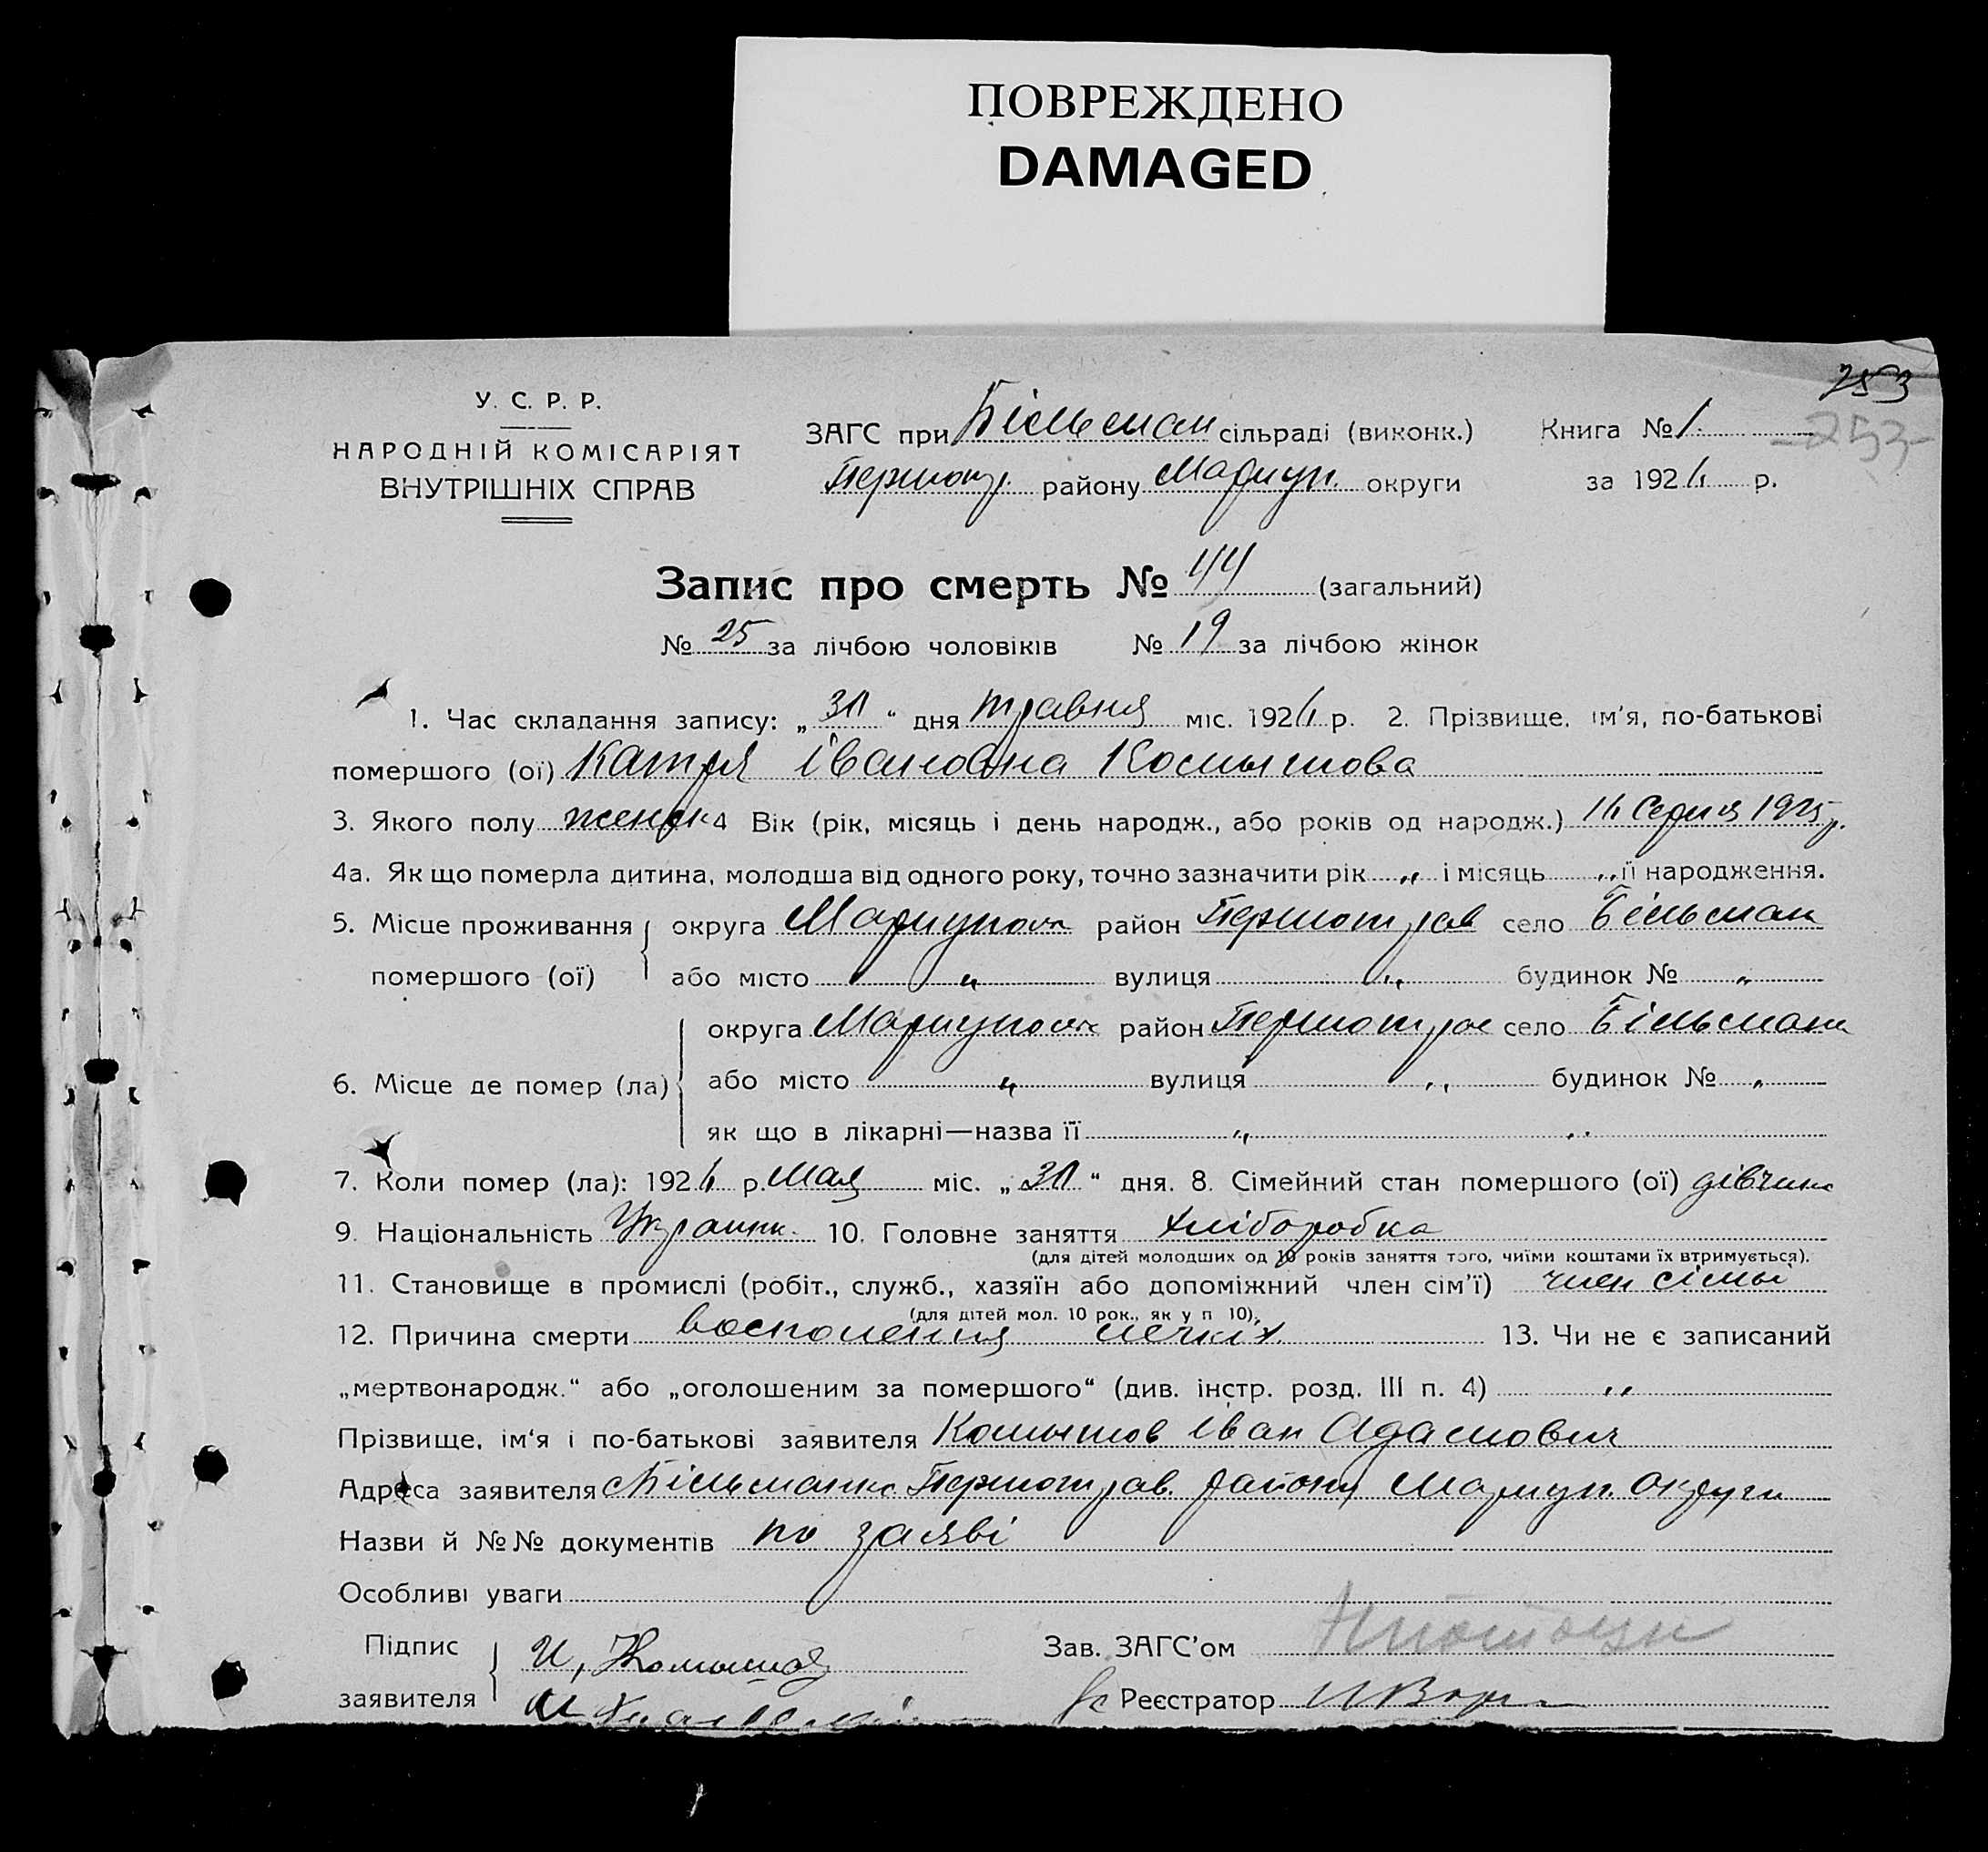 ПОВРЕЖДЕНО
DAMAGED
253
253
У. С. Р. Р.
НАРОДНІЙ КОМІСАРІЯТ
ВНУТРІШНІХ СПРАВ
ЗАГС при Більсман сільраді (виконк.) Книга № 1.
Першотр. району Мариуп. округи за 192 р.
Запис про смерть № 44 (загальний)
№ 25 за лічбою чоловіків № 19 за лічбою жінок
1. Час складання запису: „ 31 “ дня травня міс. 192 р. 2. Прізвище, ім'я, по-батькові
помершого (ої) Катря Івановна
3. Якого полу женск 4 Вік (рік, місяць і день народж., або років од народж.) 1925 р.
4а. Як що померла дитина, молодша від одного року, точно зазначити рік „ і місяць „ її народження.
5. Місце проживання округа Мариупол район Першотрав село Більсман
помершого (ої) або місто „ вулиця „ будинок № „
округа Мариупол район Першотрав село
6. Місце де помер (ла) або місто „ вулиця „ будинок № „
як що в лікарні—назва її „ „
7. Коли помер (ла): 192 р. Мая міс. „ 31 “ дня. 8. Сімейний стан помершого (ої) дівчина
9. Національність Украин. 10. Головне заняття хліборобка
(для дітей молодших од 10 років заняття того, чиїми коштами їх втримується).
11. Становище в промислі (робіт., служб., хазяїн або допоміжний член сім'ї) член сімьі
(для дітей мол. 10 рок., як у п 10).
12. Причина смерти восполения легкіх 13. Чи не є записаний
„мертвонародж.“ або „оголошеним за помершого“ (див. інстр. розд. III п. 4) „
Прізвище, ім'я і по-батькові заявителя Іван Адамович
Адреса заявителя Першотрав. району Мариуп. округи
Назви й №№ документів по заяві
Особливі уваги
Підпис И, Зав. ЗАГС'ом
заявителя Реєстратор